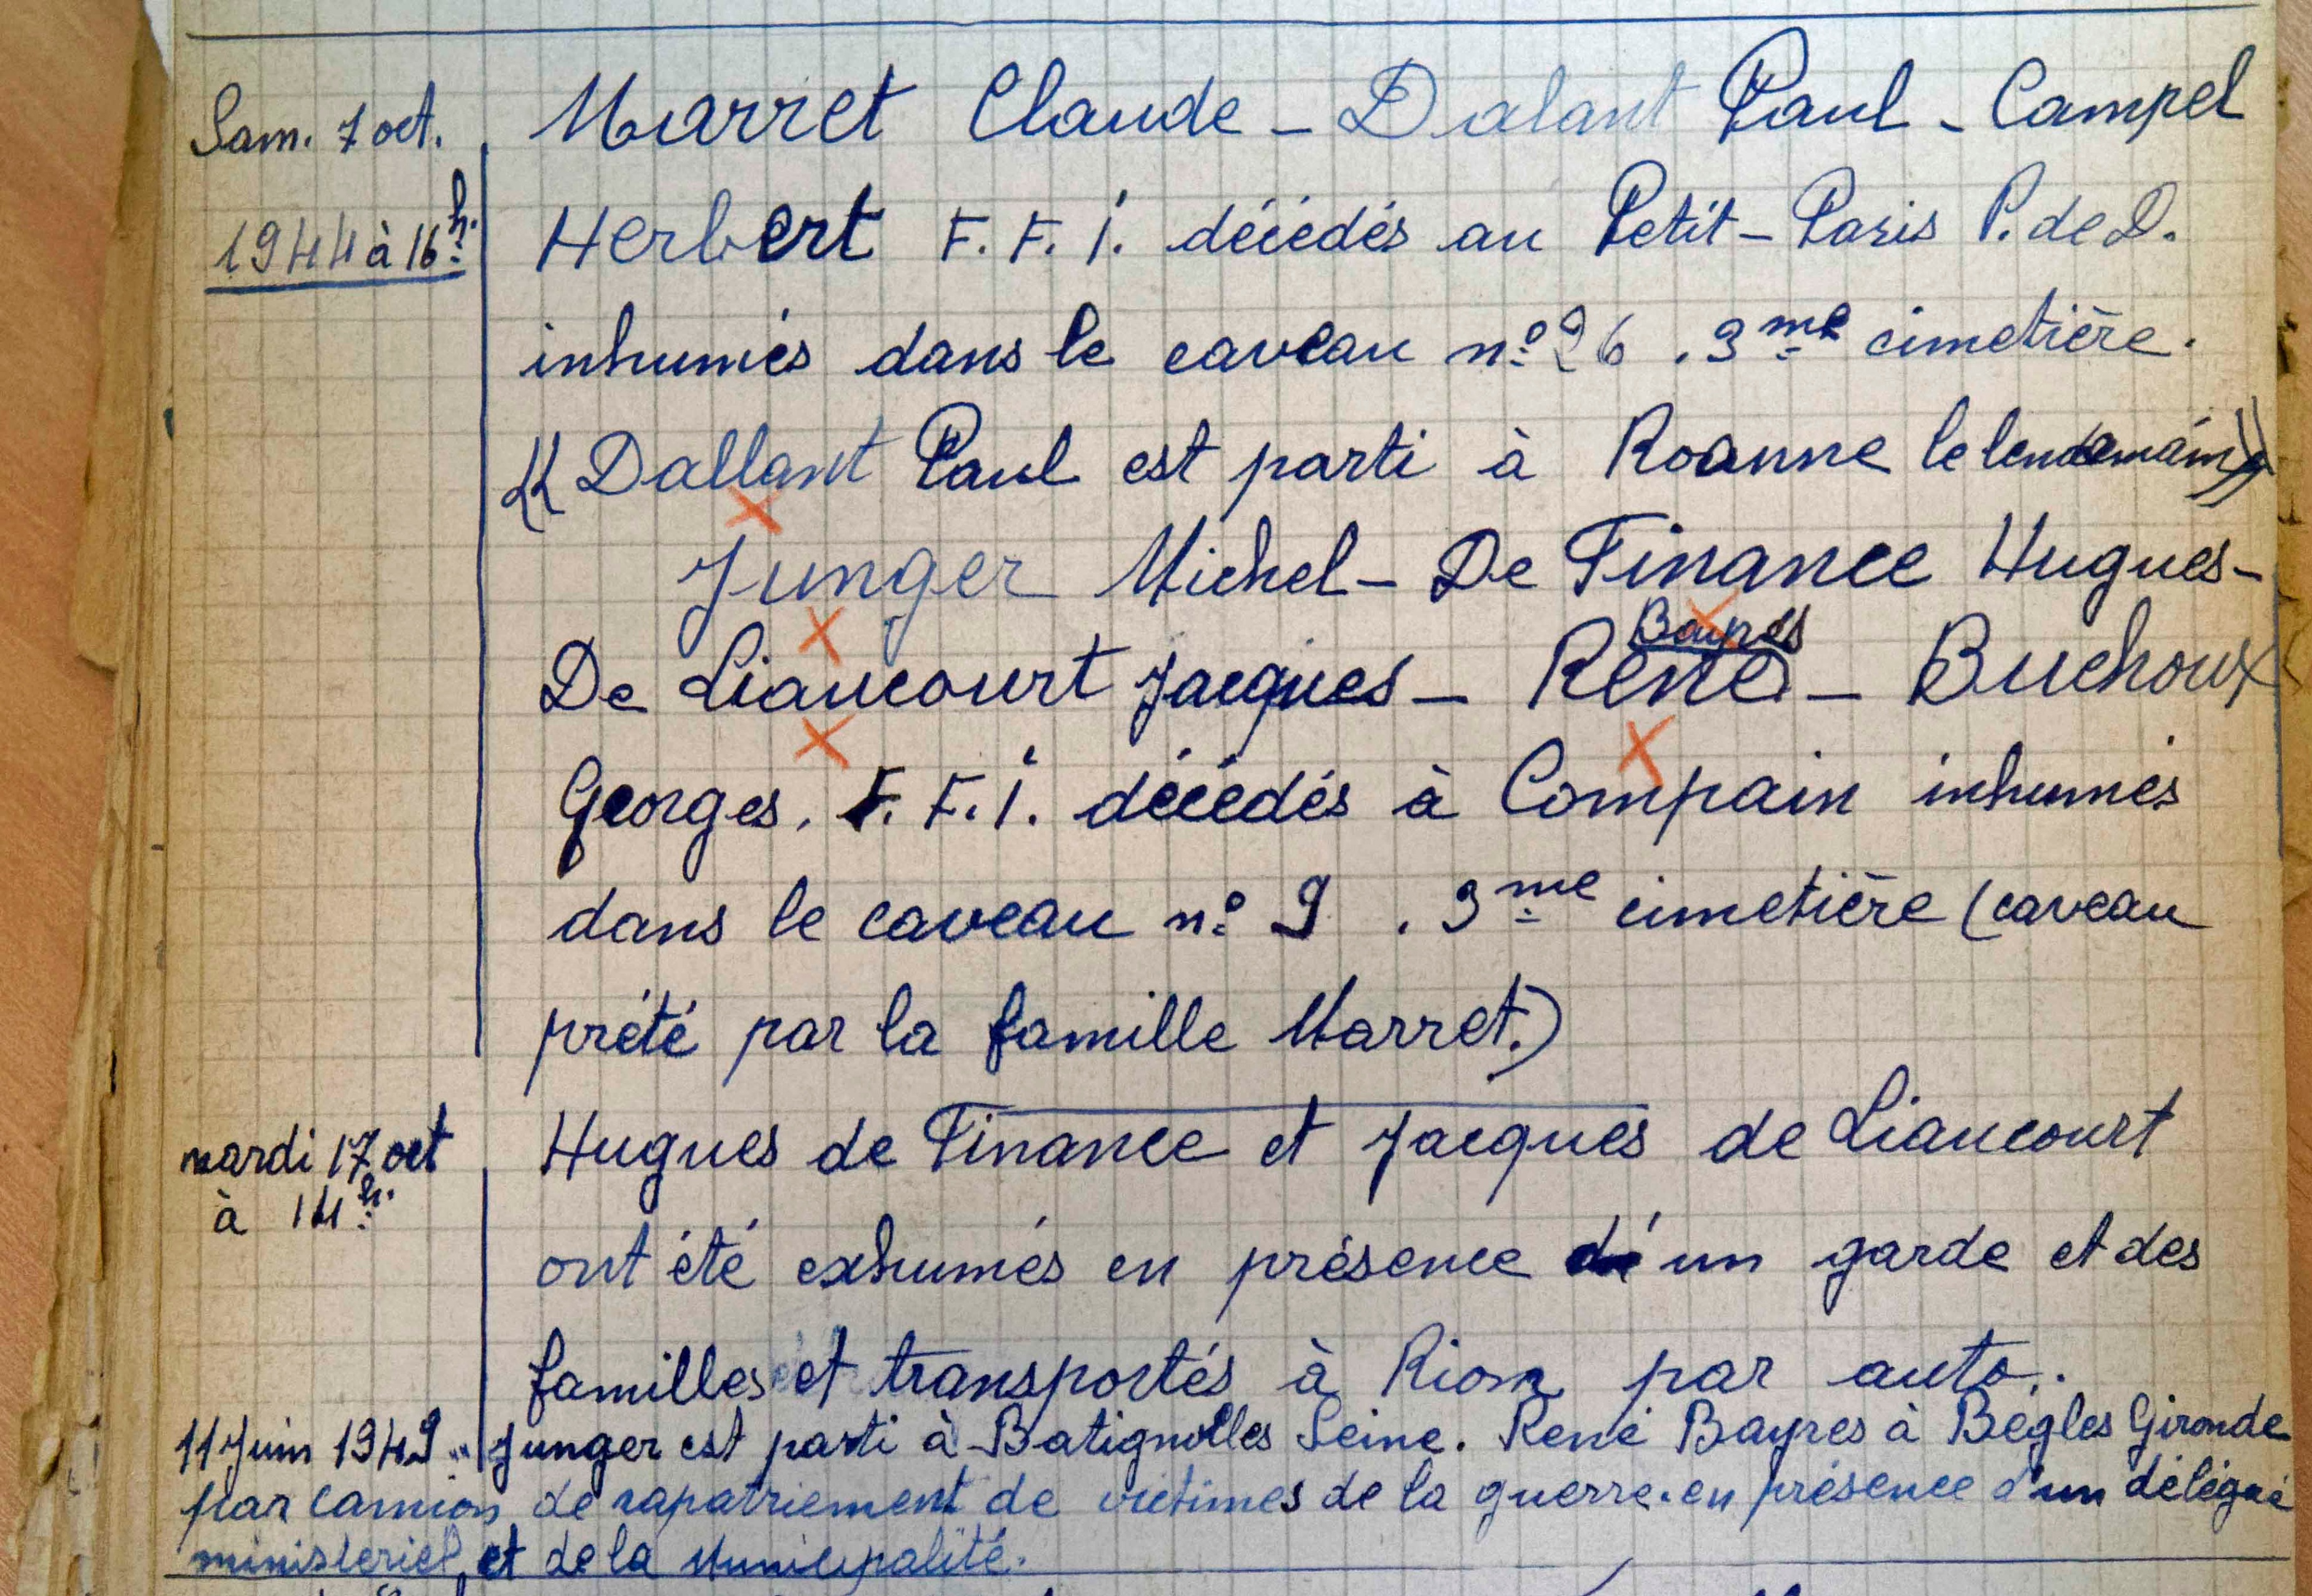 Sam. 7 oct. Marret Claude - Dalant Paul - Campel
1944 à 16h. Herbert F.F.I. décédés au Petit-Paris P. de D.
inhumés dans le caveau n° 26. 3me cimetière.
« Dallant Paul est parti à Roanne le lendemain »
Junger Michel - De Finance Hugues -
Bayres
De Liancourt Jacques - René - Buchoux
Georges. F.F.I. décédés à Compain inhumés
dans le caveau n° 9. 3me cimetière (caveau
prété par la famille Marret.)
mardi 17 oct Hugues de Finance et Jacques de Liancourt
à 14h. ont été exhumés en présence d'un garde et des
familles et transportés à Riom par auto..
11 Juin 1949 Junger est parti à Batignolles Seine. René Bayres à Bègles Gironde
par camion de rapatriement de victimes de la guerre. en présence d'un délégué
ministeriel et de la Municipalité.